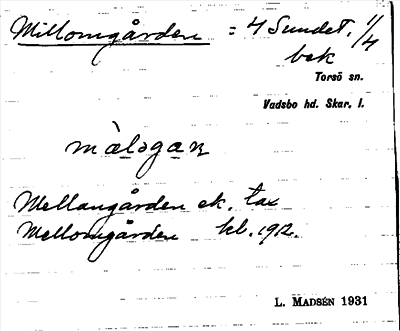 Millomgården = 4 Sundet. 1/4
bek
Torsö sn.
Vadsbo hd. Skar. l.
màlogaɳ
Mellangården ek. tax
Mellomgården kl. 1912.
L. Madsén 1931